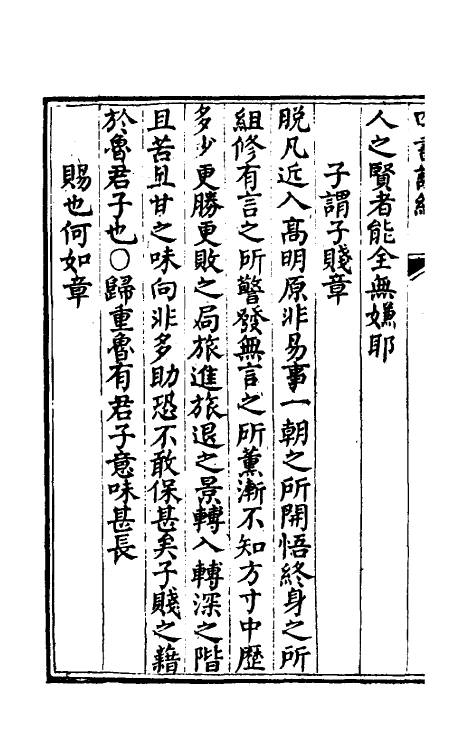 人之賢者能全無嫌耶
子謂子賤章
脫凡近入高明原非易事一朝之所開悟終身之所
組修有言之所警發無言之所薰漸不知方寸中歷
多少更勝更敗之局旅進旅退之景轉入轉深之階
且苦且甘之味向非多助恐不敢保甚矣子賤之藉
於魯君子也○歸重魯有君子意味甚長
賜也何如章